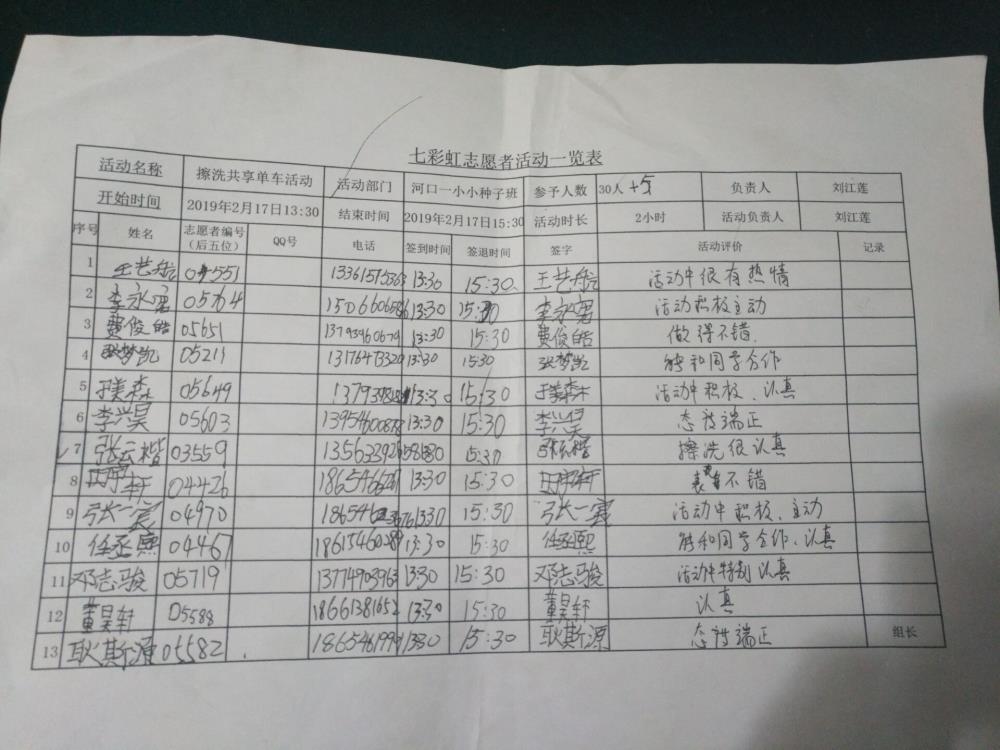 七彩虹志愿者活动一览表
活动名称 擦洗共享单车活动 活动部门 河口一小小种子班 参予人数 30人 负责人 刘江莲
开始时间 2019年2月17日13:30 结束时间 2019年2月17日15:30 活动时长 2小时 活动负责人 刘江莲
序号 姓名 志愿者编号（后五位） QQ号 电话 签到时间 签退时间 签字 活动评价 记录
1 王艺航 13:30 15:30 王艺航 活动中很有热情
2 李永富 05764 13:30 15:30 李永富 活动积极主动
3 费俊皓 05651 13:30 15:30 费俊皓 做得不错.
4 张梦凯 05211 13:30 15:30 张梦凯 能和同学合作
5 05649 15:30 活动中积极、认真
6 李兴昊 05603 13:30 15:30 李兴昊 态度端正
7 张云楷 03559 15:30 张云楷 擦洗很认真
8 04426 13:30 15:30 不错
9 张一 04970 13:30 15:30 张一 活动中积极、主动
10 任丞熙 04467 13:30 15:30 任丞熙 能和同学合作、认真
11 邓志骏 05719 13774903963 13:30 15:30 邓志骏 活动中特别认真
12 董昊轩 05588 18661381652 13:30 15:30 董昊轩 认真
13 耿斯源 05582 13:30 15:30 耿斯源 态度端正 组长